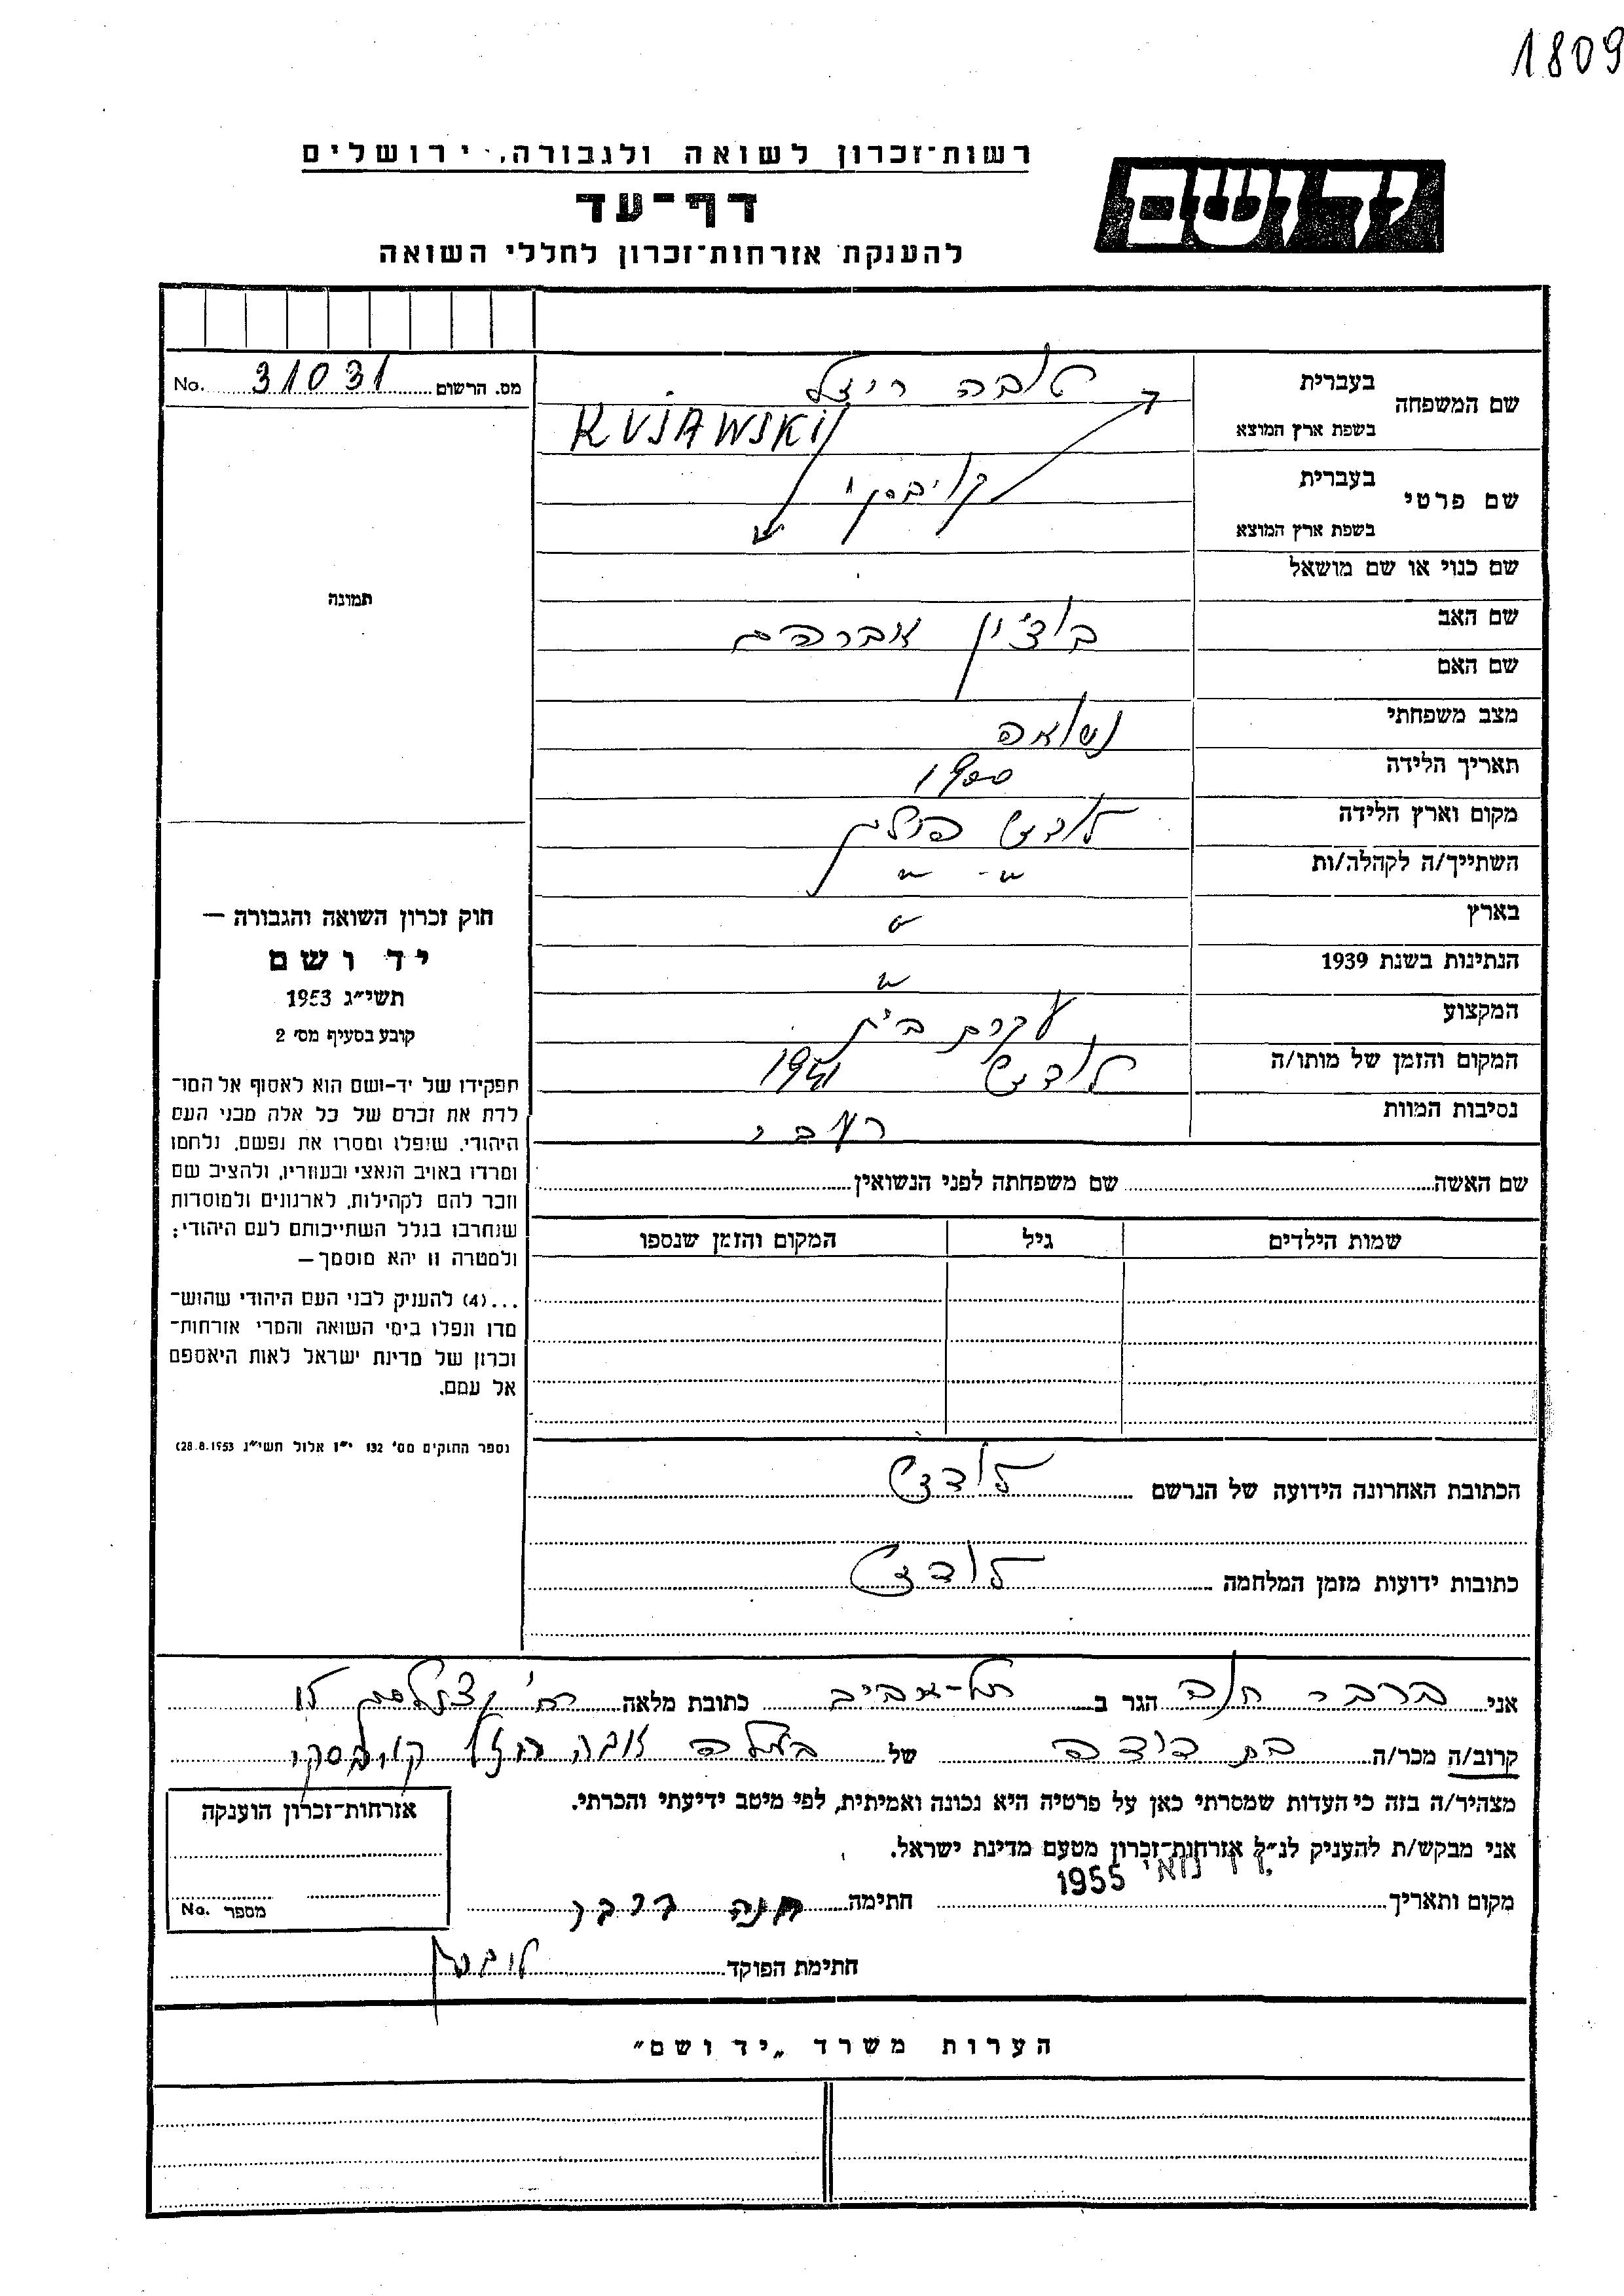 1809
רשות־זכרון לשואה ולגבורה, ירושלים
יד ושם
דף־עד
להענקת אזרחות־זכרון לחללי השואה
מס. הרשום 31031 No.
שם המשפחה
בעברית טובה ריצל
בשפת ארץ המוצא KUJAWSKI
שם פרטי
בעברית קויבסקי
בשפת ארץ המוצא
שם כנוי או שם מושאל
שם האב אברהם
שם האם
מצב משפחתי נשואה
תאריך הלידה 1900
מקום וארץ הלידה לודז' פולין
השתייך/ה לקהלה/ות
בארץ
הנתינות בשנת 1939
המקצוע עקרת בית
המקום והזמן של מותו/ה לודז' 1941
נסיבות המוות רעב
תמונה
חוק זכרון השואה והגבורה —
יד ושם
תשי״ג 1953
קובע בסעיף מס׳ 2
תפקידו של יד-ושם הוא לאסוף אל המו־
לדת את זכרם של כל אלה מבני העם
היהודי, שנפלו ומסרו את נפשם, נלחמו
ומרדו באויב הנאצי ובעוזריו, ולהציב שם
וזכר להם לקהילות, לארגונים ולמוסדות
שנחרבו בגלל השתייכותם לעם היהודי;
ולמטרה זו יהא מוסמך—
...(4) להעניק לבני העם היהודי שהוש־
מדו ונפלו בימי השואה והמרי אזרחות־
זכרון של מדינת ישראל לאות היאספם
אל עמם.
(ספר החוקים מס׳ 132 י״ז אלול תשי״ג 28.8.1953)
שם האשה שם משפחתה לפני הנשואין
שמות הילדים גיל המקום והזמן שנספו
הכתובת האחרונה הידועה של הנרשם לודז'
כתובות ידועות מזמן המלחמה לודז'
אני ברבר חנה הגר ב תל-אביב כתובת מלאה
קרוב/ה מכר/ה בת דודה של קויבסקי
מצהיר/ה בזה כי העדות שמסרתי כאן על פרטיה היא נכונה ואמיתית, לפי מיטב ידיעתי והכרתי.
אני מבקש/ת להעניק לנ״ל אזרחות־זכרון מטעם מדינת ישראל.
מקום ותאריך מאי 1955 חתימה חנה ברבר
חתימת הפוקד
אזרחות־זכרון הוענקה
מספר No.
הערות משרד „יד ושם״